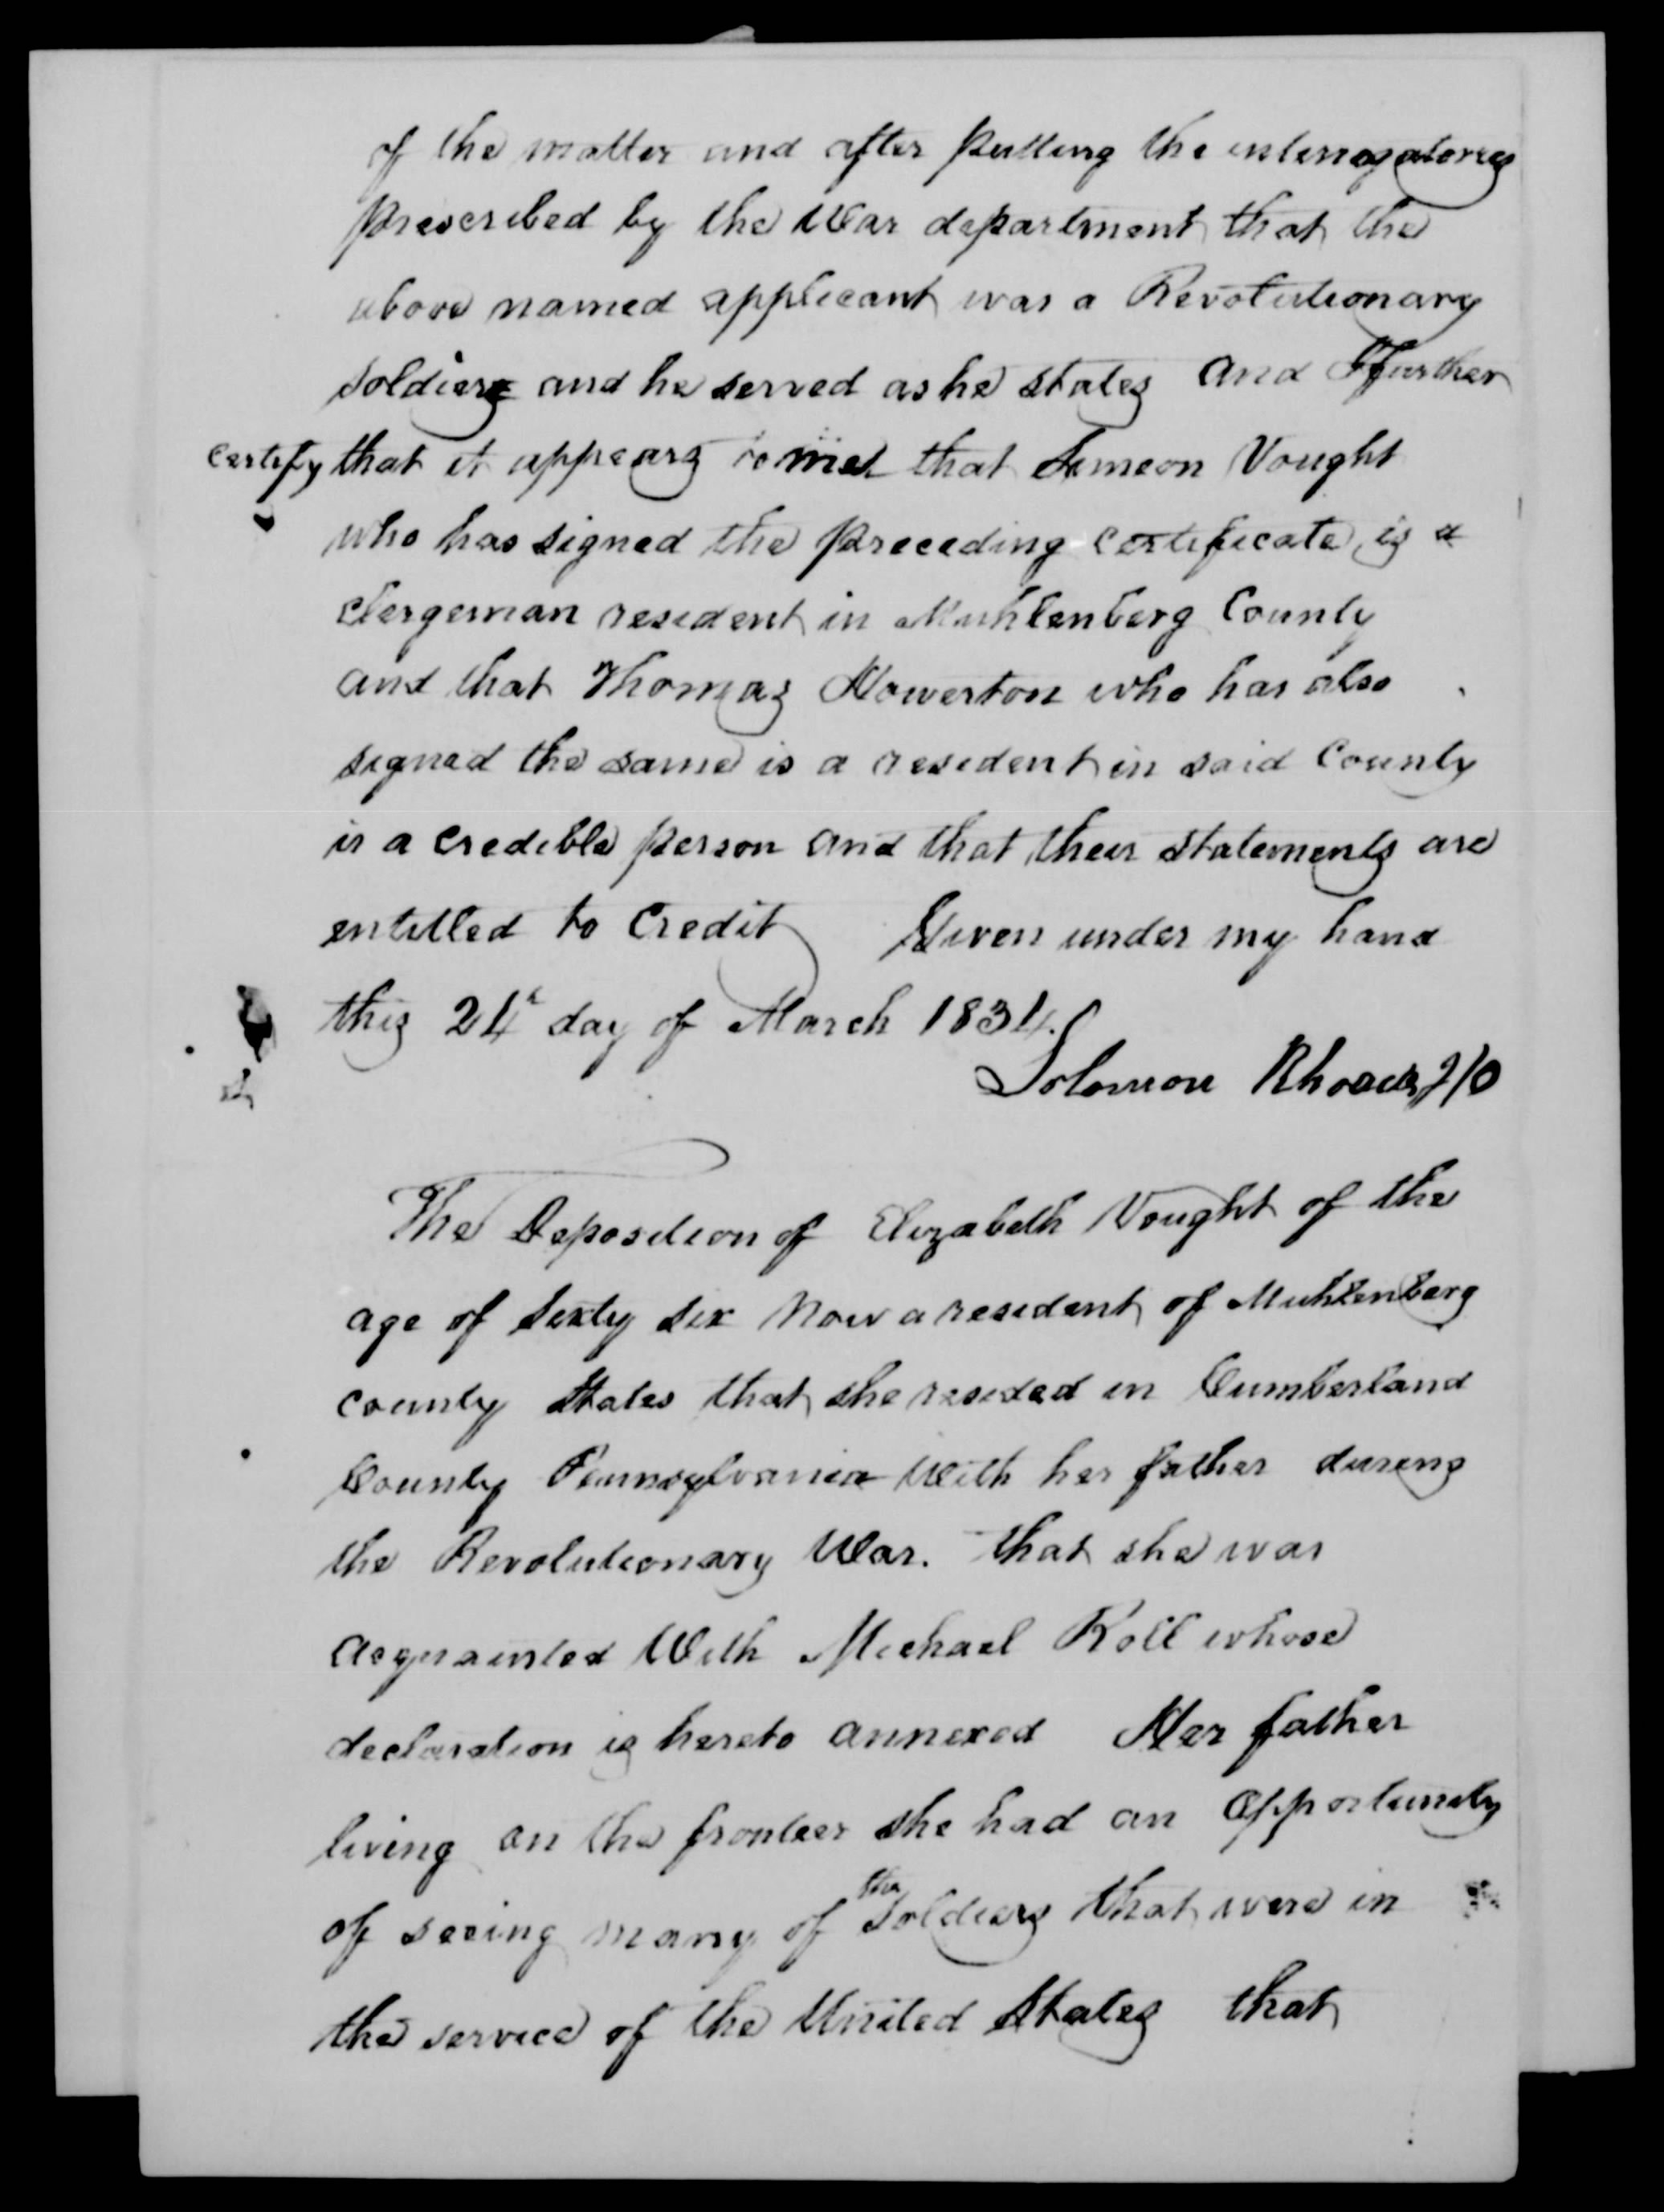 of the matter and after putting the interrogatories
prescribed by the War department that the
above named applicant was a Revolutionary
soldier and he served as he states and further
certify that it appears to me that Simeon Vought
who has signed the preceding certificate is a
clergeman resident in Muhlenberg County
and that Thomas Howerton who has also
signed the same is a resident in said County
is a credible person and that their statements are
entitled to credit Given under my hand
this 24th day of March 1834.
Solomon Rhoads
The Deposition of Elizabeth Vought of the
age of sixty six Now a resident of Muhlenberg
county states that she resided in Cumberland
County Pennsylvania With her father during
the Revolutionary War. that she was
acquainted With Michael Roll whose
declaration is hereto annexed Her father
living on the fronteer she had an opportunity
of seeing many of the soldiers that were in
the service of the United States that